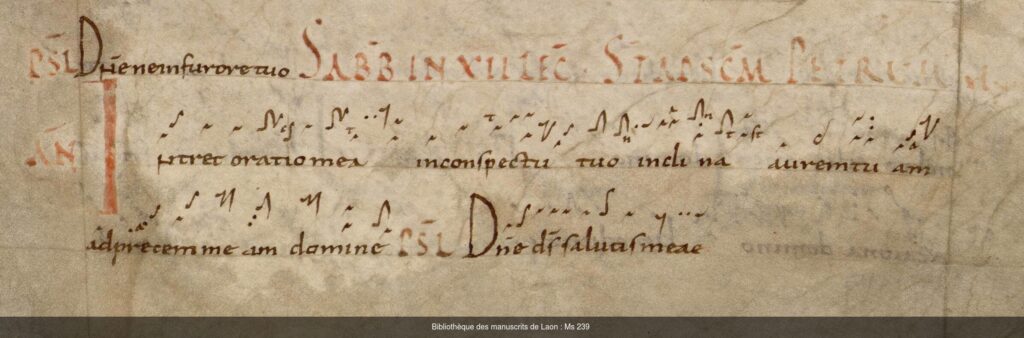 PSL Dn̄e ne in furore tuo SABB IN XII LEC STAD SCM PETRUM
AN Intret oratio mea in conspectu tuo inclina aurem tuam
ad precem meam domine PSL Dn̄e ds̄ salutis meae
Bibliothèque des manuscrits de Laon : Ms 239